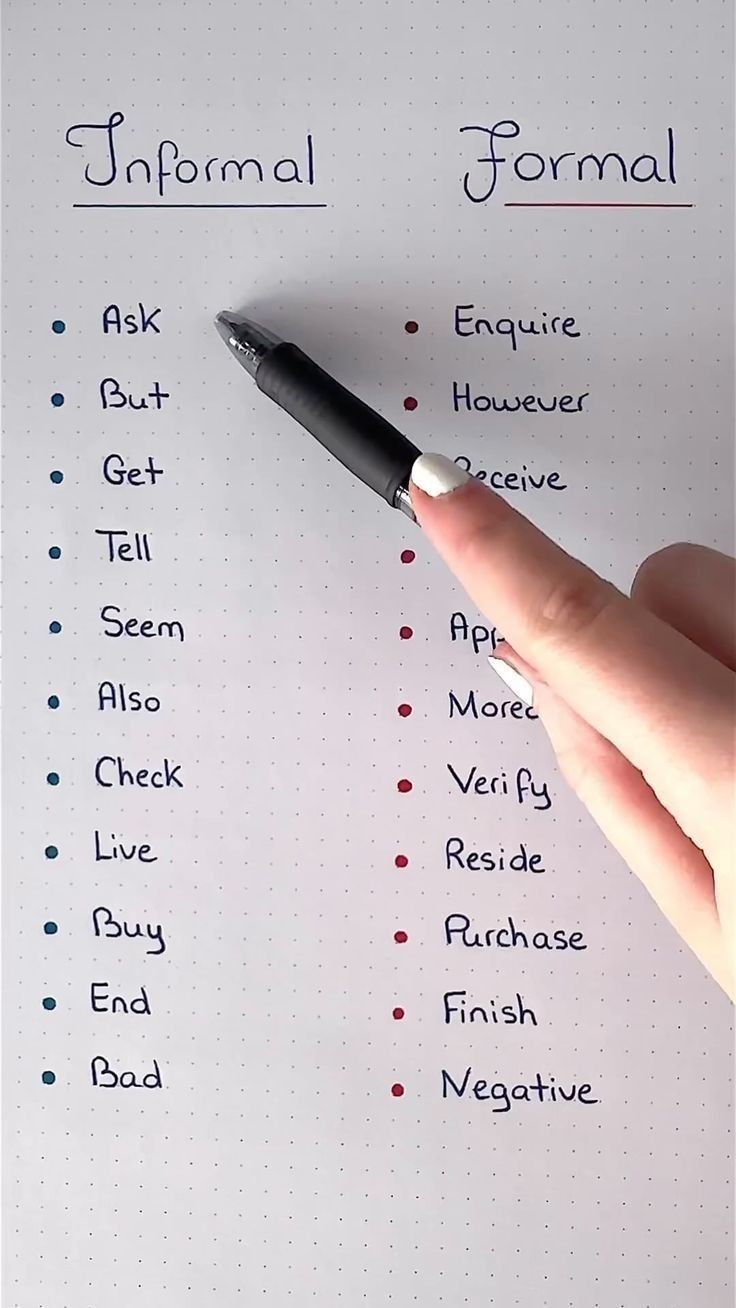 Informal Formal
Ask Enquire
But However
Get Receive
Tell
Seem
Also
Check Verify
Live Reside
Buy Purchase
End Finish
Bad Negative